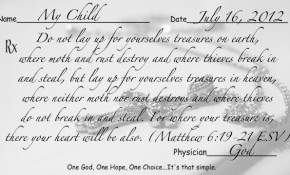 Name My Child Date July 16, 2012
Rx Do not lay up for yourselves treasures on earth,
where moth and rust destroy and where thieves break in
and steal, but lay up for yourselves treasures in heaven,
where neither moth nor rust destroys and where thieves
do not break in and steal. For where your treasure is,
there your heart will be also. (Matthew 6:19-21 ESV)
Physician God
One God, One Hope, One Choice...It's that simple.